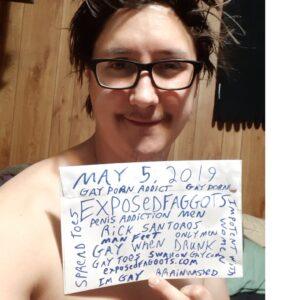 MAY 5, 2019
GAY PORN ADDICT GAY PORN
EXPOSEDFAGGOTS
PENIS ADDICTION MEN
RICK SANTOROS
MAN FEET ONLY MEN
GAY WHEN DRUNK
GAY TOES SWALLOW GAY CUM
EXPOSEDFAGGOTS.COM
IM GAY BRAINWASHED
SPREAD TOES
IMPOTENT WITH
WOMEN